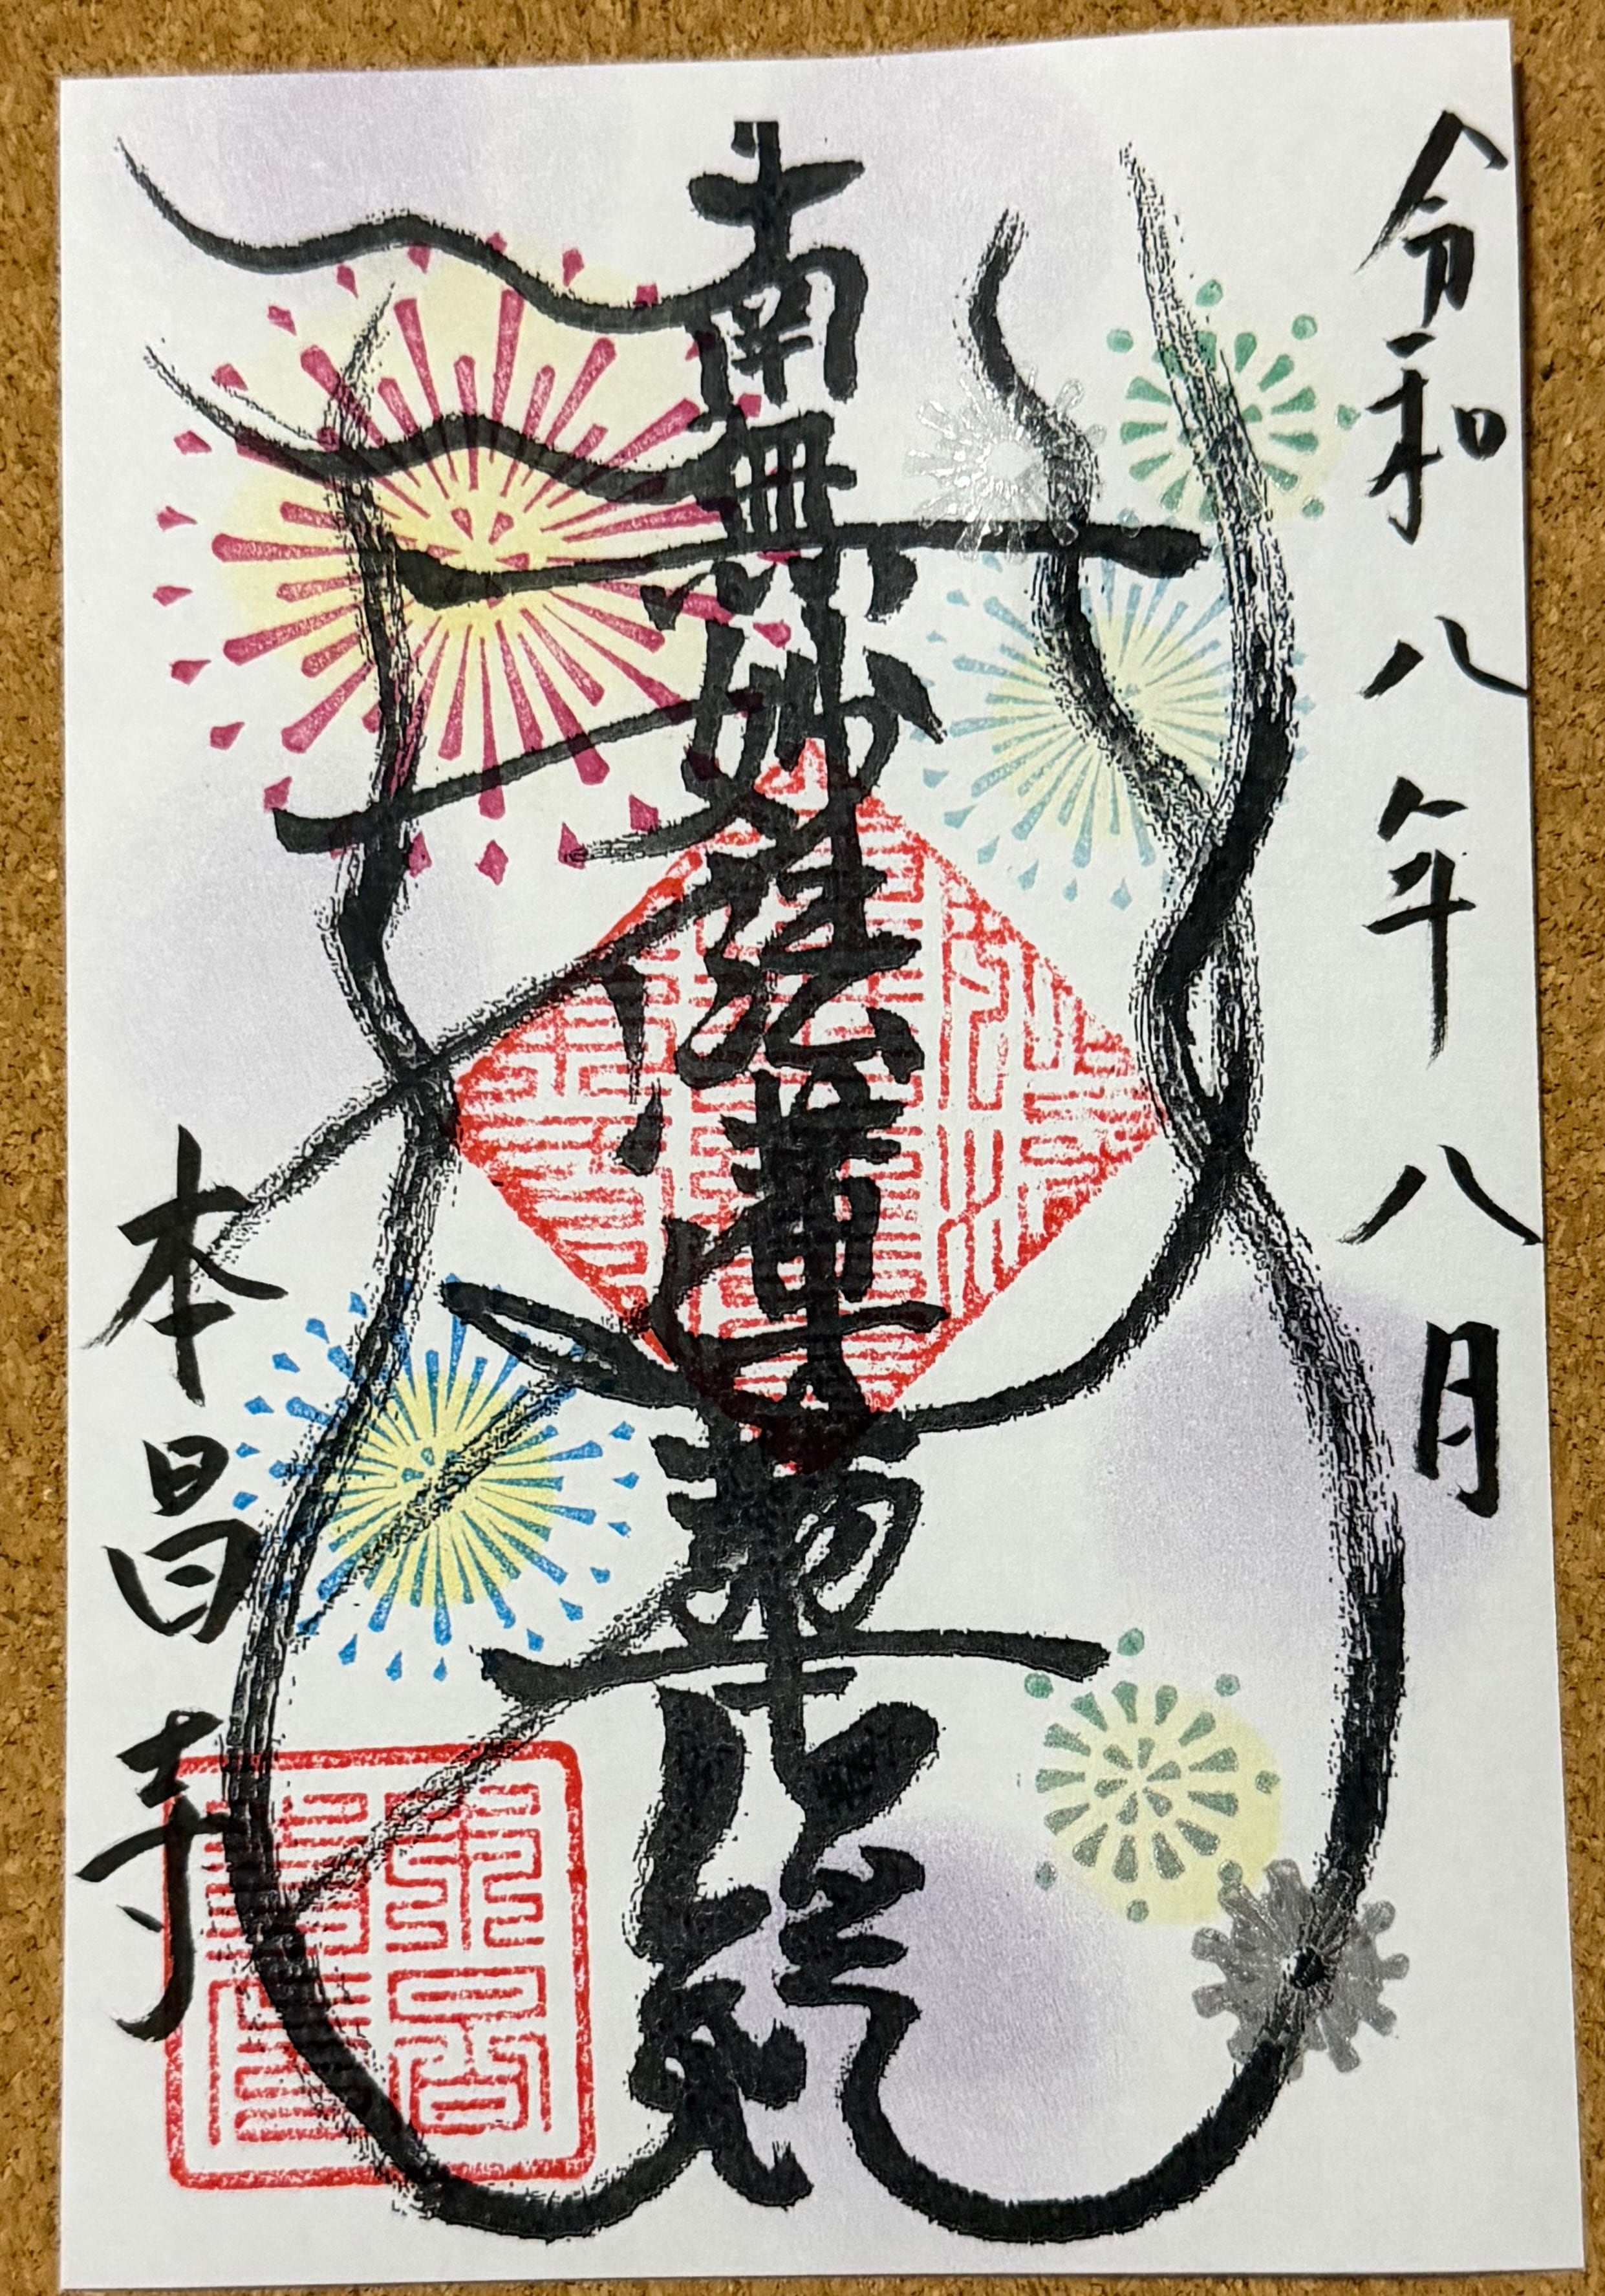 令和八年八月
南無妙法蓮華経
本昌寺